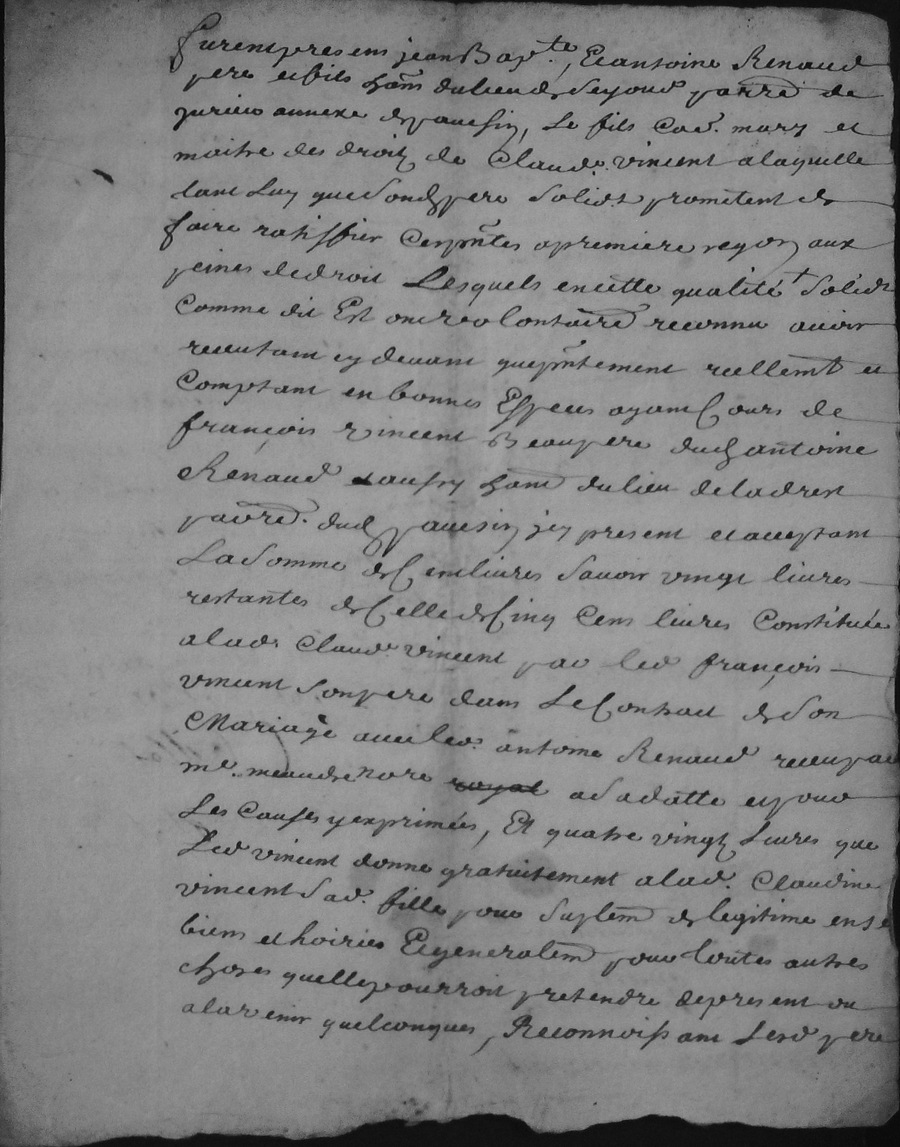 furent presens jean Bapte, Et antoine Renaud
pere et fils hans du lieu de parre de
jurieu annexe de pavesin, Le fils cod. mary et
maitre des droitz de Claude. vincent a laquelle
tant Luy que sond pere solidt prometent de
faire ratiffier Ces pntes a premiere reqon aux
peines de droit Lesquels en cette qualité solidt
Comme dit Est ont vo lontairet reconnu avoir
receu tant cy devant que pntement reellemt et
Comptant en bonnes Especes ayant Cours de
françois vincent Beaupere dud antoine
Renaud aussy hant du lieu de ladret
parre. dud pavesin jcy present et acceptant
La Somme de Cent livres Savoir vingt livres
restantes de Celle de Cinq Cens livres Constituée
a lade Claude. vincent par led françois
vincent Son pere dans Le Contract de Son
Mariage avec led. antoine Renaud receu par
me. meandre nore royal a sa datte et pour
Les Causes y exprimées, Et quatre vingtz Livres que
Led vincent donne gratuitement a lad. Claudine
vincent Sad. fille pour Suplemt de legitime en se
biens et hoiries Et generalemt pour toutes autres
choses quelle pourroit pretendre de present ou
a lavenir quelconques, Reconnoissant Lesd pere